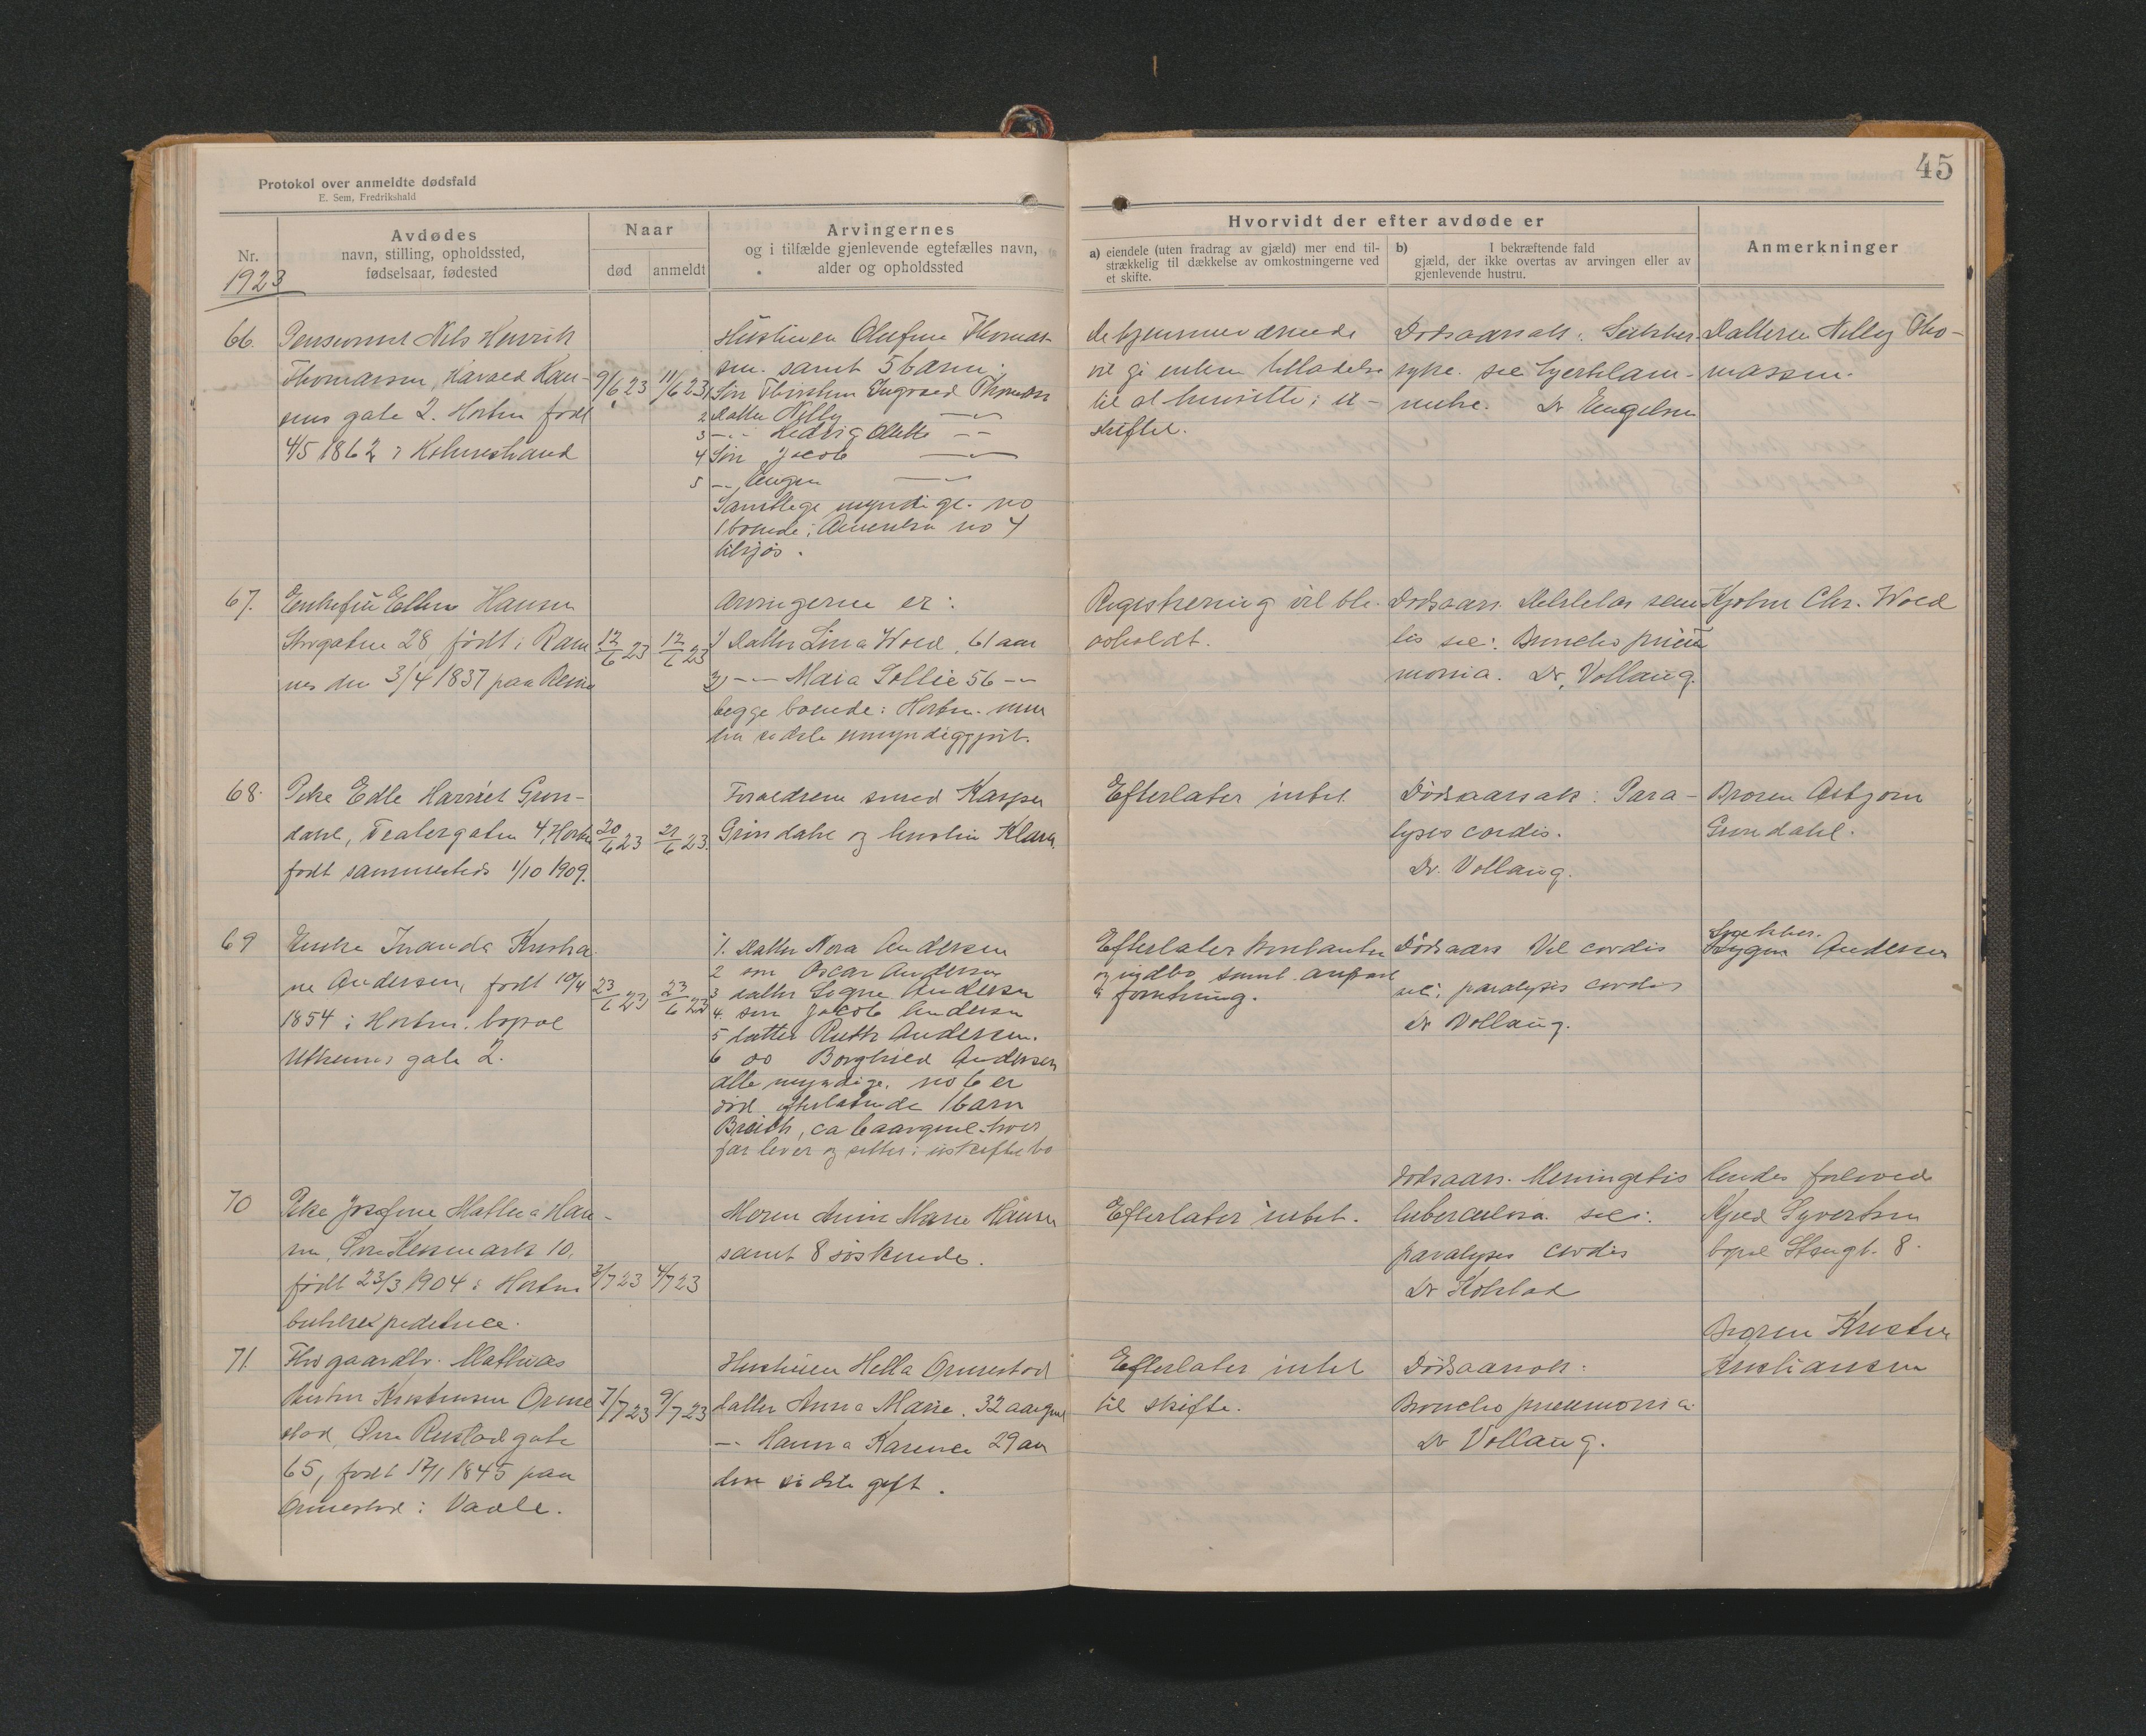 45
Protokol over anmeldte dødsfald
E. Sem, Fredrikshald
Nr.
1923
Avdødes
navn, stilling, opholdssted,
fødselsaar, fødested
Naar
død
anmeldt
Arvingernes
og i tilfælde gjenlevende egtefælles navn,
alder og opholdssted
Hvorvidt der efter avdøde er
a) eiendele (uten fradrag av gjæld) mer end til-
strækkelig til dækkelse av omkostningerne ved
et skifte.
b) I bekræftende fald
gjæld, der ikke overtas av arvingen eller av
gjenlevende hustru.
Anmerkninger
66.
Pensionist Nils Henrik
Thomassen, Harald Haar-
gate 2. Horten født
4/5 1862 i Holmestrand
9/6 23
11/6 23
Hustruen Olufine Thomas-
sen. samt 5 barn.
1 Søn Thorstein Ingvald Thomassen
2 Datter Nelly
3 -"- Hedvig Olette -"-
4 Søn Jacob
5 -"- Eugen
Samtlige myndige. no
1 boende i Amerika no 4
tilsjøs.
De hjemmeværende
vil gi enken tilladelse
til at hensitte i u-
skiftet.
Dødsaarsak: Sukker-
syke. sec Hjertelam-
melse. Dr Engelsen
Datteren Nelly Tho-
massen.
67.
Enkefru Ellen Hansen
Storgaten 28 født i Ram
nes den 3/4 1837 paa
12/6 23
12/6 23
Arvingerne er:
1) Datter Lina Wold, 61 aar
2) -"- Maia Sollie 56 -"-
begge boende i Horten.
sidste umyndiggjort.
Registrering vil bli
avholdt.
Dødsaars. sen
lis sec: Broncho pneu
monia. Dr. Vollaug.
Chr. Wold
68.
Pike Edle Harriet Grin-
dahl, Teatergaten 4, Horten
født sammesteds 1/10 1909.
20/6 23
21/6 23.
Forældrene smed Kasper
Grindahl og hustru Klara.
Efterlater intet
Dødsaarsak: Para-
lyses cordis.
Dr. Vollaug.
Broren Asbjørn
Grindahl.
69
Enke Inanda Kristia
ne Andersen, født 10/4
1854 i Horten. bopæl
gate 2.
23/6 23
23/6 23
1. Datter Nora Andersen
2 søn Oscar Andersen
3 datter Signe Andersen
4. søn Jacob Andersen
5 datter Ruth Andersen.
6 do Borghild Andersen
alle myndige. no 6 er
død efterlatende 1 barn
ca 6 aar gml. hvis
far lever og sitter i uskiftet bo
Efterlater kontanter
og indbo samt anpart
i forretning.
Dødsaars Vit cordis
sec: paralysis cordis
Dr Vollaug.
Andersen
70
Pike Josefine Mathea Han-
sen, 10,
født 23/3 1904 i Horten
butikexpeditrice.
3/7 23
4/7 23
Moren Anna Marie Hansen
samt 8 søskende.
Efterlater intet.
Dødsaars. Meningitis
tuberculosa. sec:
paralyses cordis
Dr Kolstad
hendes forlovede
Syvertsen
bopæl Storgt. 8.
71.
Fhv gaardbr. Mathias
Kristensen Orme
stad, Rustadgate
65, født 17/1 1845 paa
Ormestad i Vaale.
7/7 23
9/7 23
Hustruen Hella Ormestad
datter Anna Marie. 32 aar gml
-"- Hanna Karence 29 aar
den sidste gift.
Efterlater intet
til skifte.
Dødsaarsak:
Broncho pneumonia.
Dr Vollaug.
Broren Kristen
Kristiansen